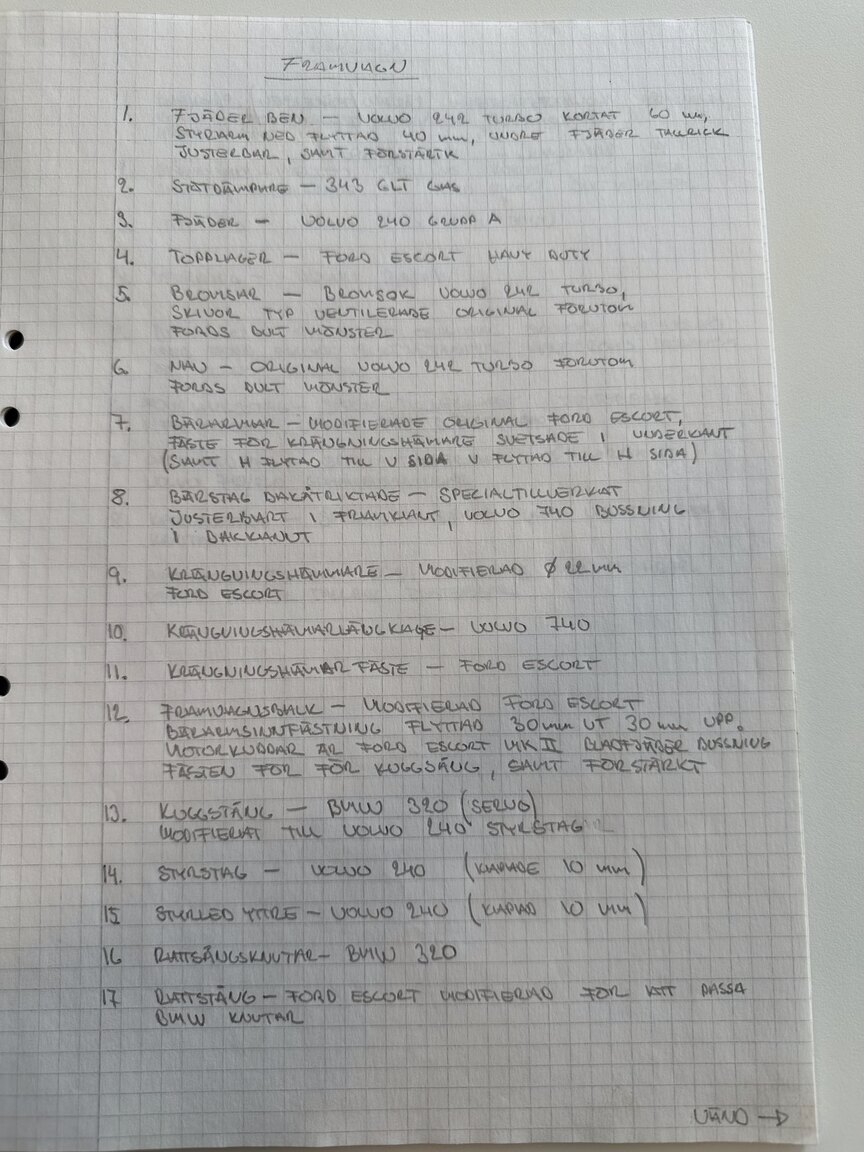 FRAMVAGN
1. FJÄDER BEN – VOLVO 242 TURBO KORTAT 60 mm,
STYRARM NED FLYTTAD 40 mm, UNDRE FJÄDER TALLRICK
JUSTERBAR, SAMT FÖRSTÄRTK
2. STÖTDÄMPARE – 343 GLT GAS
3. FJÄDER – VOLVO 240 GRUPP A
4. TOPPLAGER – FORD ESCORT HAVY DUTY
5. BROMSAR – BROMSOK VOLVO 242 TURBO,
SKIVOR TYP VENTILERADE ORIGINAL FÖRUTOM
FORDS BULT MÖNSTER
6. NAV – ORIGINAL VOLVO 242 TURBO FÖRUTOM
FORDS BULT MÖNSTER
7. BÄRARMAR – MODIFIERADE ORIGINAL FORD ESCORT,
FÄSTE FÖR KRÄGNINGSHÄMARE SVETSADE I UNDERKANT
(SAMT H FLYTAD TILL V SIDA V FLYTTAD TILL H SIDA)
8. BÄRSTAG BAKÅTRIKTADE – SPECIALTILLVERKAT
JUSTERBART I FRAMKANT, VOLVO 740 BUSSNING
I BAKKANNT
9. KRÄNGNINGSHÄMMARE – MODIFIERAD Ø 22 mm
FORD ESCORT
10. KRÄNGNINGSHÄMARLÄNGKAGE – VOLVO 740
11. KRÄNGNINGSHÄMAR FÄSTE – FORD ESCORT
12. FRAMVAGNSBALK – MODIFIERAD FORD ESCORT
BÄRARMSINNFÄSTNING FLYTTAD 30mm UT 30 mm UPP.
MOTORKUDDAR ÄR FORD ESCORT MK II BLADFJÄDER BUSSNING
FÄSTEN FÖR FÖR KUGGSÄNG, SAMT FÖRSTÄRKT
13. KUGGSTÅNG – BMW 320 (SERVO)
MODIFIERAT TILL VOLVO 240 STYRSTAG
14. STYRSTAG – VOLVO 240 (KAPADE 10 mm)
15 STYRLED YTTRE – VOLVO 240 (KAPAD 10 mm)
16 RATTSÅNGSKNUTAR – BMW 320
17 RATTSTÅNG – FORD ESCORT MODIFIERAD FÖR ATT PASSA
BMW KNUTAR
VÄND →